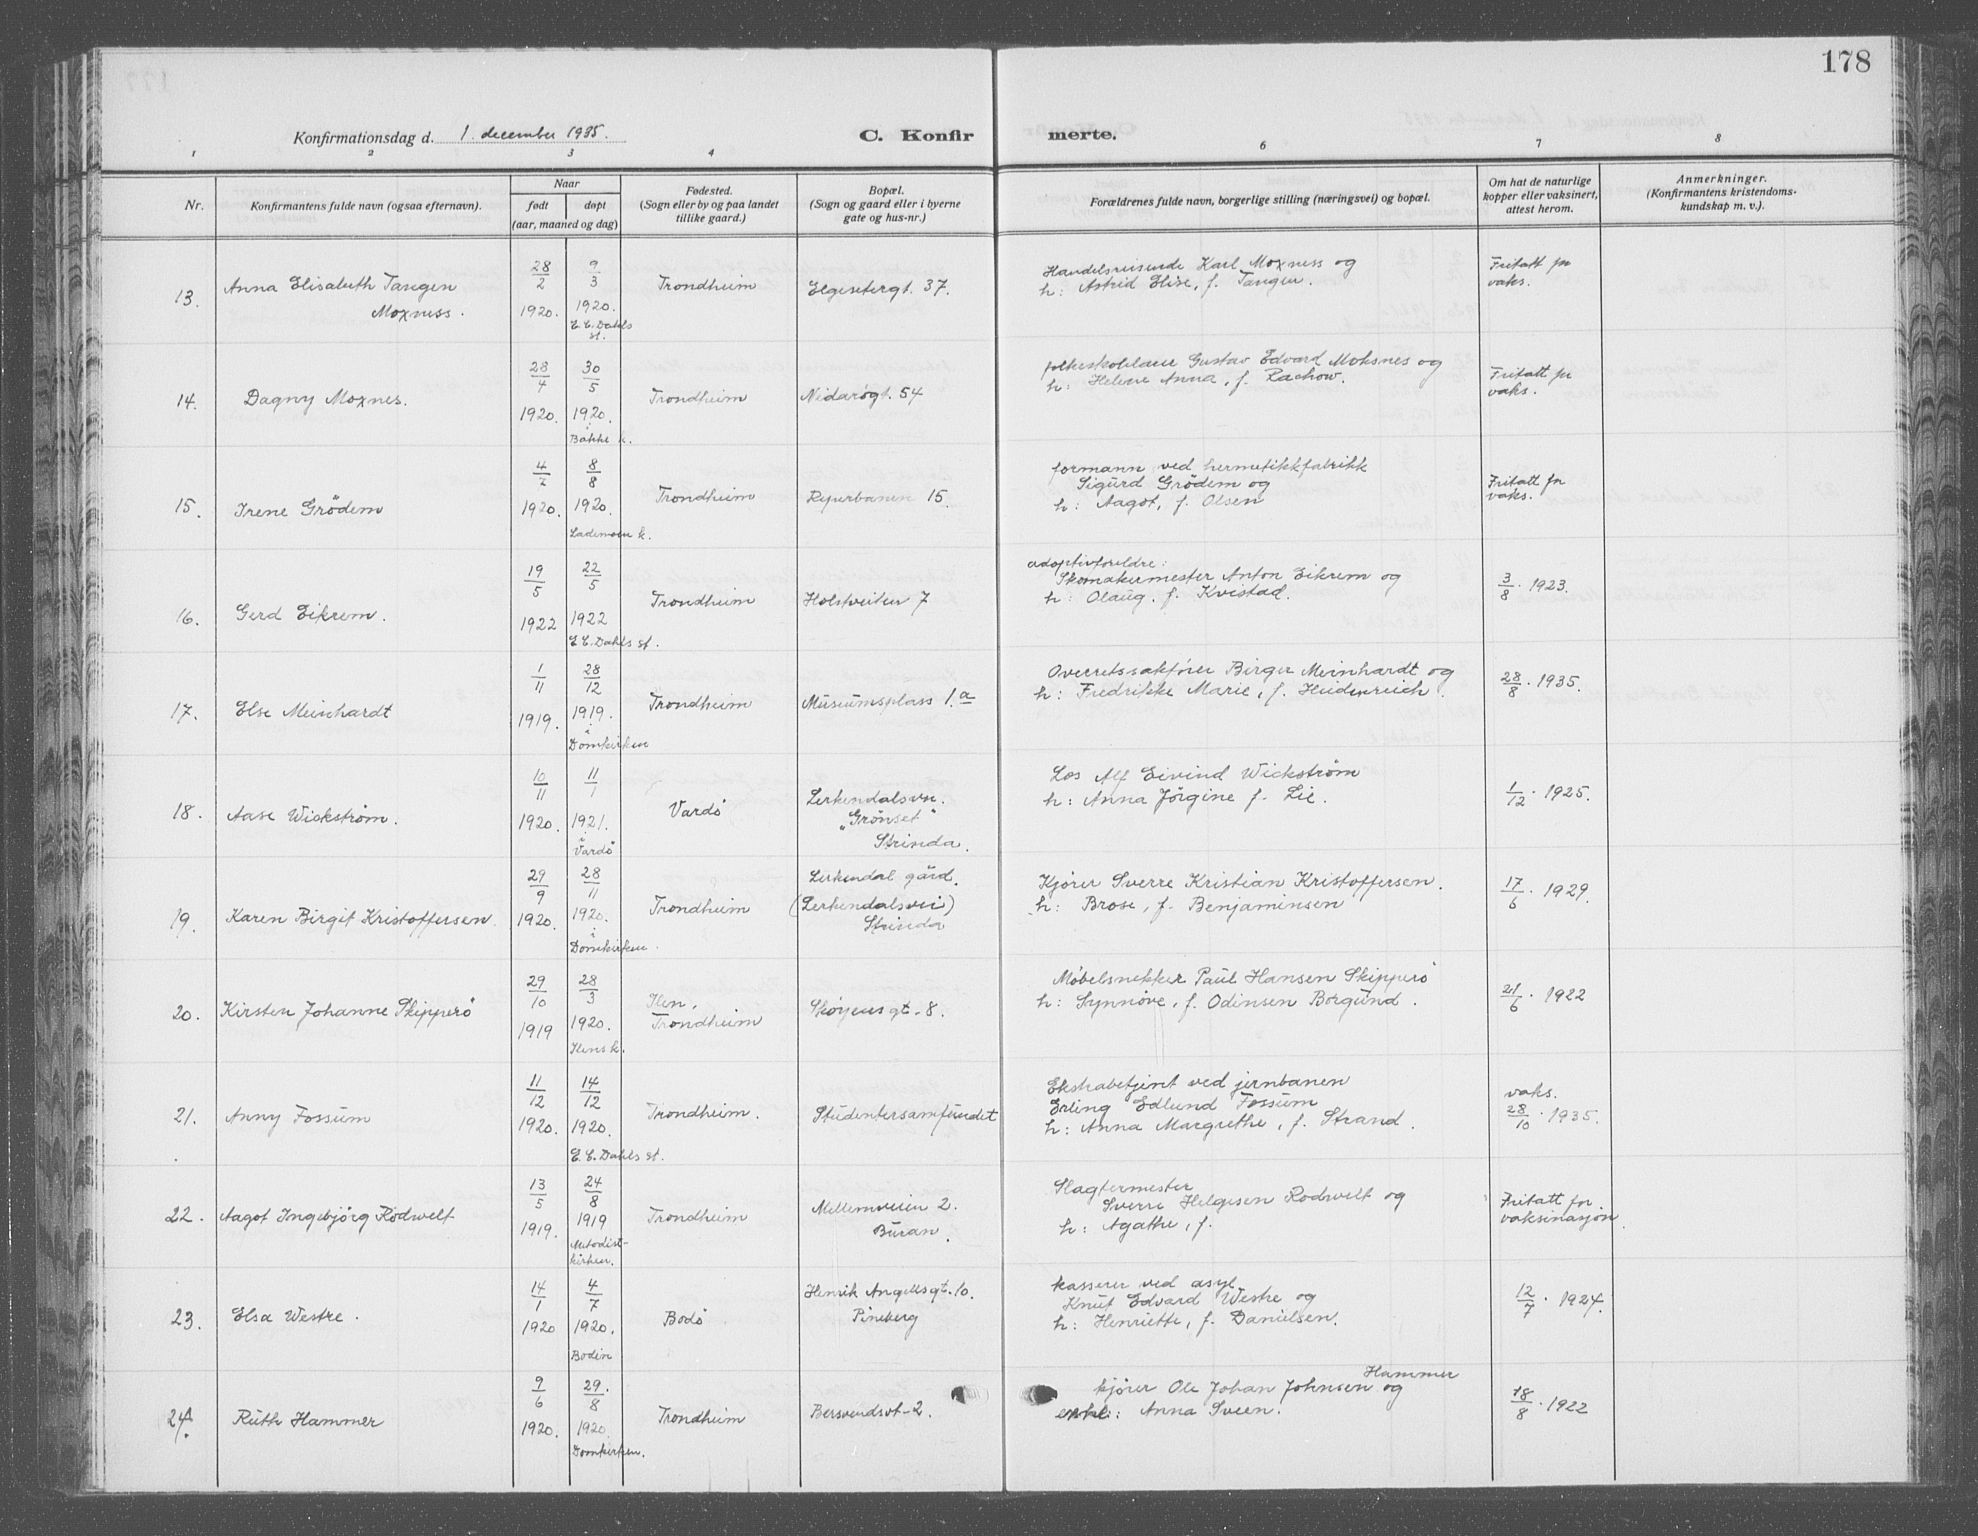 178
Konfirmationsdag d. 1. december 1935.
C. Konfir
merte.
1 2 3 4 6 7 8
Nr.
Konfirmantens fulde navn (ogsaa efternavn).
Naar
født
døpt
(aar, maaned og dag)
Fødested.
(Sogn eller by og paa landet
tillike gaard.)
Bopæl.
(Sogn og gaard eller i byerne
gate og hus-nr.)
Forældrenes fulde navn, borgerlige stilling (næringsvei) og bopæl.
Om hat de naturlige
kopper eller vaksinert,
attest herom.
Anmerkninger.
(Konfirmantens kristendoms-
kundskap m. v.).
13.
Anna Elisabeth Tangen
Moxness.
28/2
1920.
9/3
1920.
E. C. Dahls
st.
Trondheim
Elgesetergt. 37.
Handelsreisende Karl Moxness og
h: Astrid Elise, f. Tangen.
Fritatt for
vaks.
14.
Dagny Moxnes.
28/4
1920.
30/5
1920.
i
Bakke k.
Trondheim
Nidarøgt. 54
folkeskolelærer Gustav Edvard Moksnes og
h: Helene Anna, f. Rachow.
Fritatt for
vaks.
15.
Irene Grödem
4/7
1920.
8/8
1920.
Lademoen k.
Trondheim
Reperbanen 15.
formann ved hermetikkfabrikk
Sigurd Grödem og
h: Aagot, f. Olsen
Fritatt for
vaks.
16.
Gerd Eikrem.
19/5
1922
22/5
1922
E. C. Dahls st.
Trondheim
Holstveiten 7
adoptivforeldre:
Skomakermester Anton Eikrem og
h: Olaug. f. Kvistad.
3/8. 1923.
17.
Else Meinhardt
1/11
1919.
28/12
1919.
i
Domkirken
Trondheim
Museumsplass 1.a
Overretssakfører Birger Meinhardt og
h: Fredrikke Marie, f. Heidenreich.
28/8. 1935.
18.
Aase Wickström.
10/11
1920.
11/1
1921.
i
Vardö
Vardö
Lerkendalsvn.
"Grönset"
Strinda.
Los Alf Eivind Wickström
h: Anna Jörgine f. Lie.
1/12. 1925.
19.
Karen Birgit Kristoffersen.
29/9
1920.
28/11
1920.
i
Domkirken.
Trondheim
Lerkendal gård.
(Lerkendalsvei)
Strinda
Kjører Sverre Kristian Kristoffersen.
h: Brose, f. Benjaminsen
17/6. 1929.
20.
Kirsten Johanne Skipperö
29/10
1919
28/3
1920.
Ilens k.
Ilen,
Trondheim
Skøyensgt. 8.
Møbelsnekker Paul Hansen Skipperö
h: Synnöve, f. Odinsen Borgund.
21/6. 1922
21.
Anny Fossum
11/12
1920.
14/12
1920.
E. C. Dahls st.
Trondheim.
Studentersamfundet
Ekstrabetjent ved jernbanen
Erling Edlund Fossum
h: Anna Margrethe, f. Strand.
vaks.
28/10. 1935.
22.
Aagot Ingebjörg Rödwelt
13/5
1919.
24/8
1919
Metodist-
kirken.
Trondheim
Mellemveien 2.
Buran.
Slagtermester
Sverre Helgesen Rödwelt og
h: Agathe, f.
Fritatt for
vaksinasjon.
23.
Elsa Westre.
14/1
1920
4/7
1920.
Bodin
Bodö
Henrik Angellsgt. 10.
Pineberg
kasserer ved asyl
Knut Edvard Westre og
h: Henriette, f. Danielsen.
12/7. 1924.
24.
Ruth Hammer
9/6
1920.
29/8
1920.
Domkirken.
Trondheim
Bersvendsvt. 2.
Hammer
kjører Ole Johan Johnsen og
Anna Sveen.
18/8. 1922